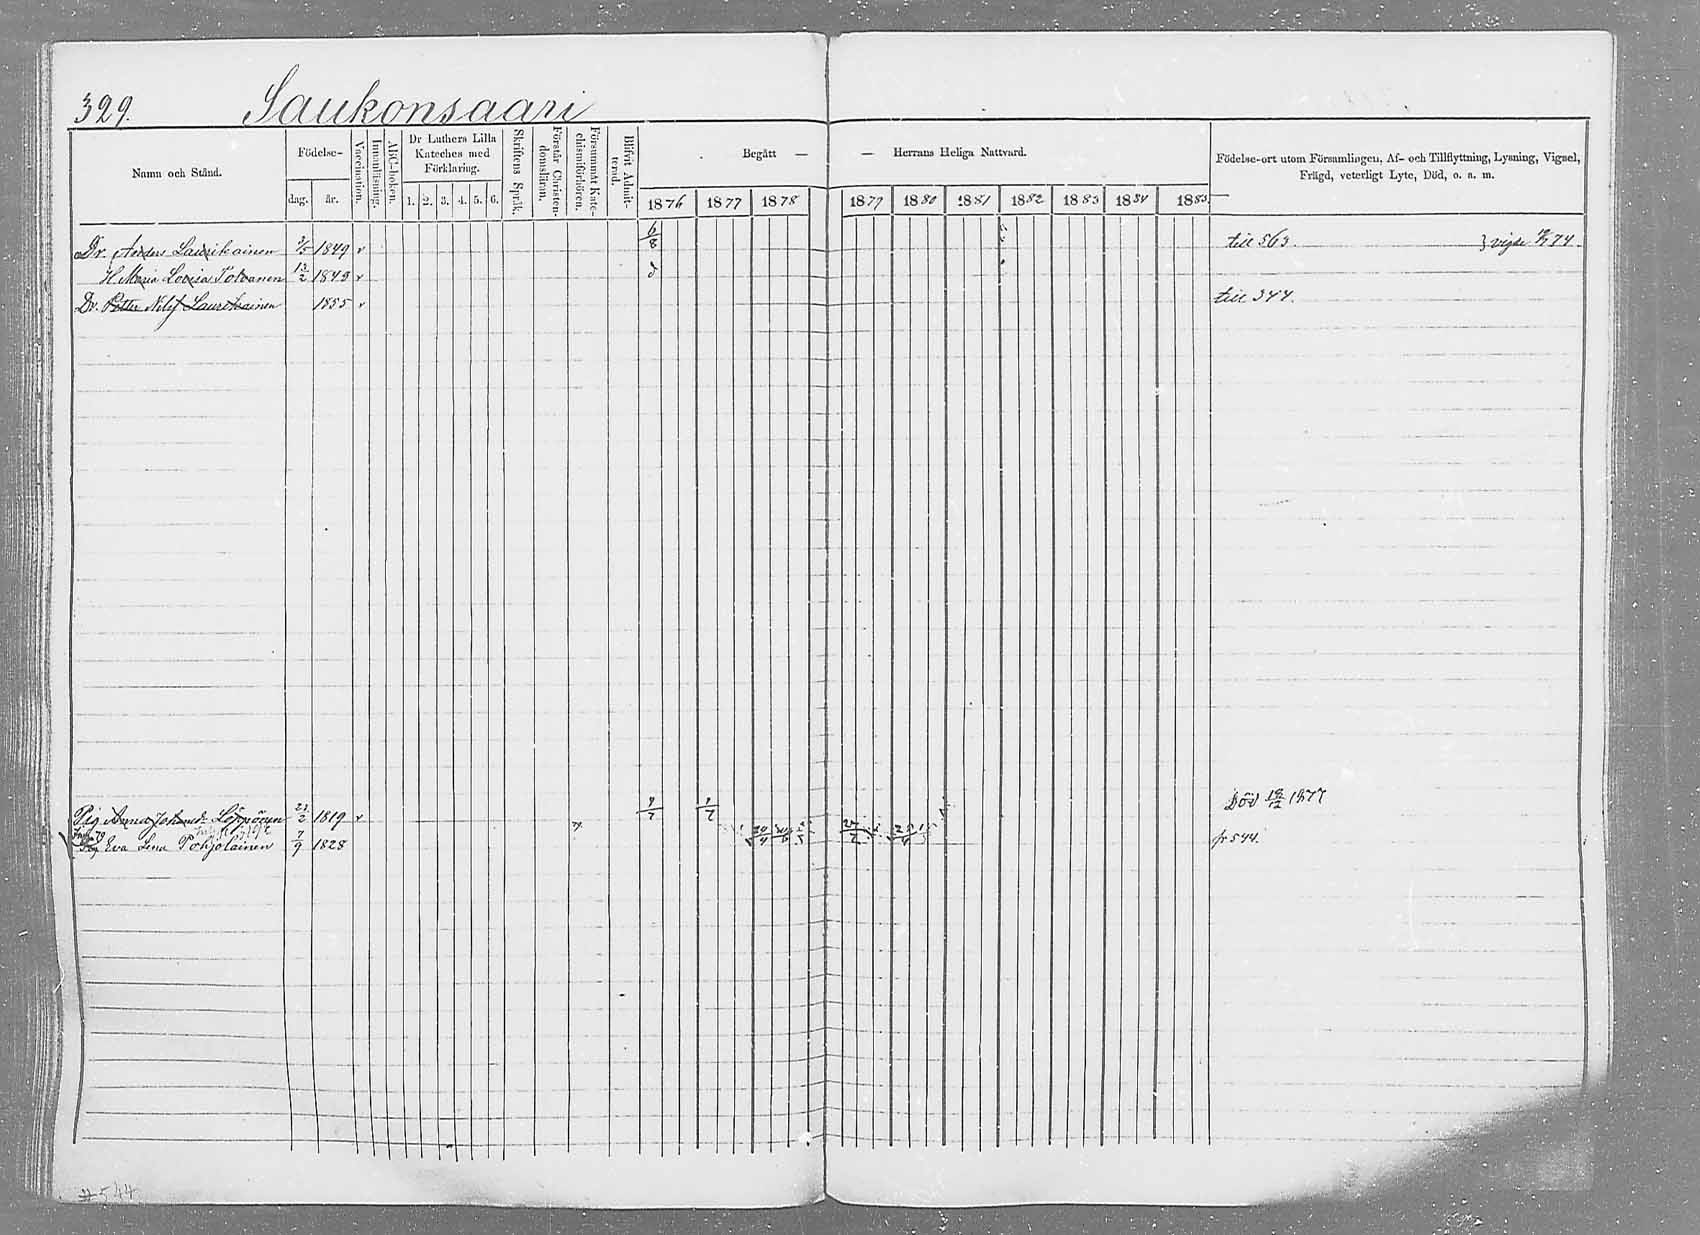 329. Saukonsaari
Namn och Stånd.
Födelse-
dag. år.
Vaccination.
Innanläsning.
ABC-boken.
Dr Luthers Lilla Kateches med Förklaring.
1. 2. 3. 4. 5. 6.
Skriftens Språk.
Förstår Christen-domsläran.
Försummat Kate-chismiförhören.
Blifvit Admit-terad.
Begått — — Herrans Heliga Nattvard.
1876 1877 1878 1879 1880 1881 1882 1883 1884 1885
Födelse-ort utom Församlingen, Af- och Tillflyttning, Lysning, Vigsel,
Frägd, veterligt Lyte, Död, o. a. m.
Dr. Anders Laurikainen 1849 v 6/8 till 563. } vigde 74.
H. Maria Lovisa Tolvanen 12/2 1849 v d
Dr. Petter Laurikainen 1855 v till 344.
Pig Anna Johanna 23/2 1819 v Död 1877
Eva Lena Pohjolainen 7/9 1828 fr 544.
#544